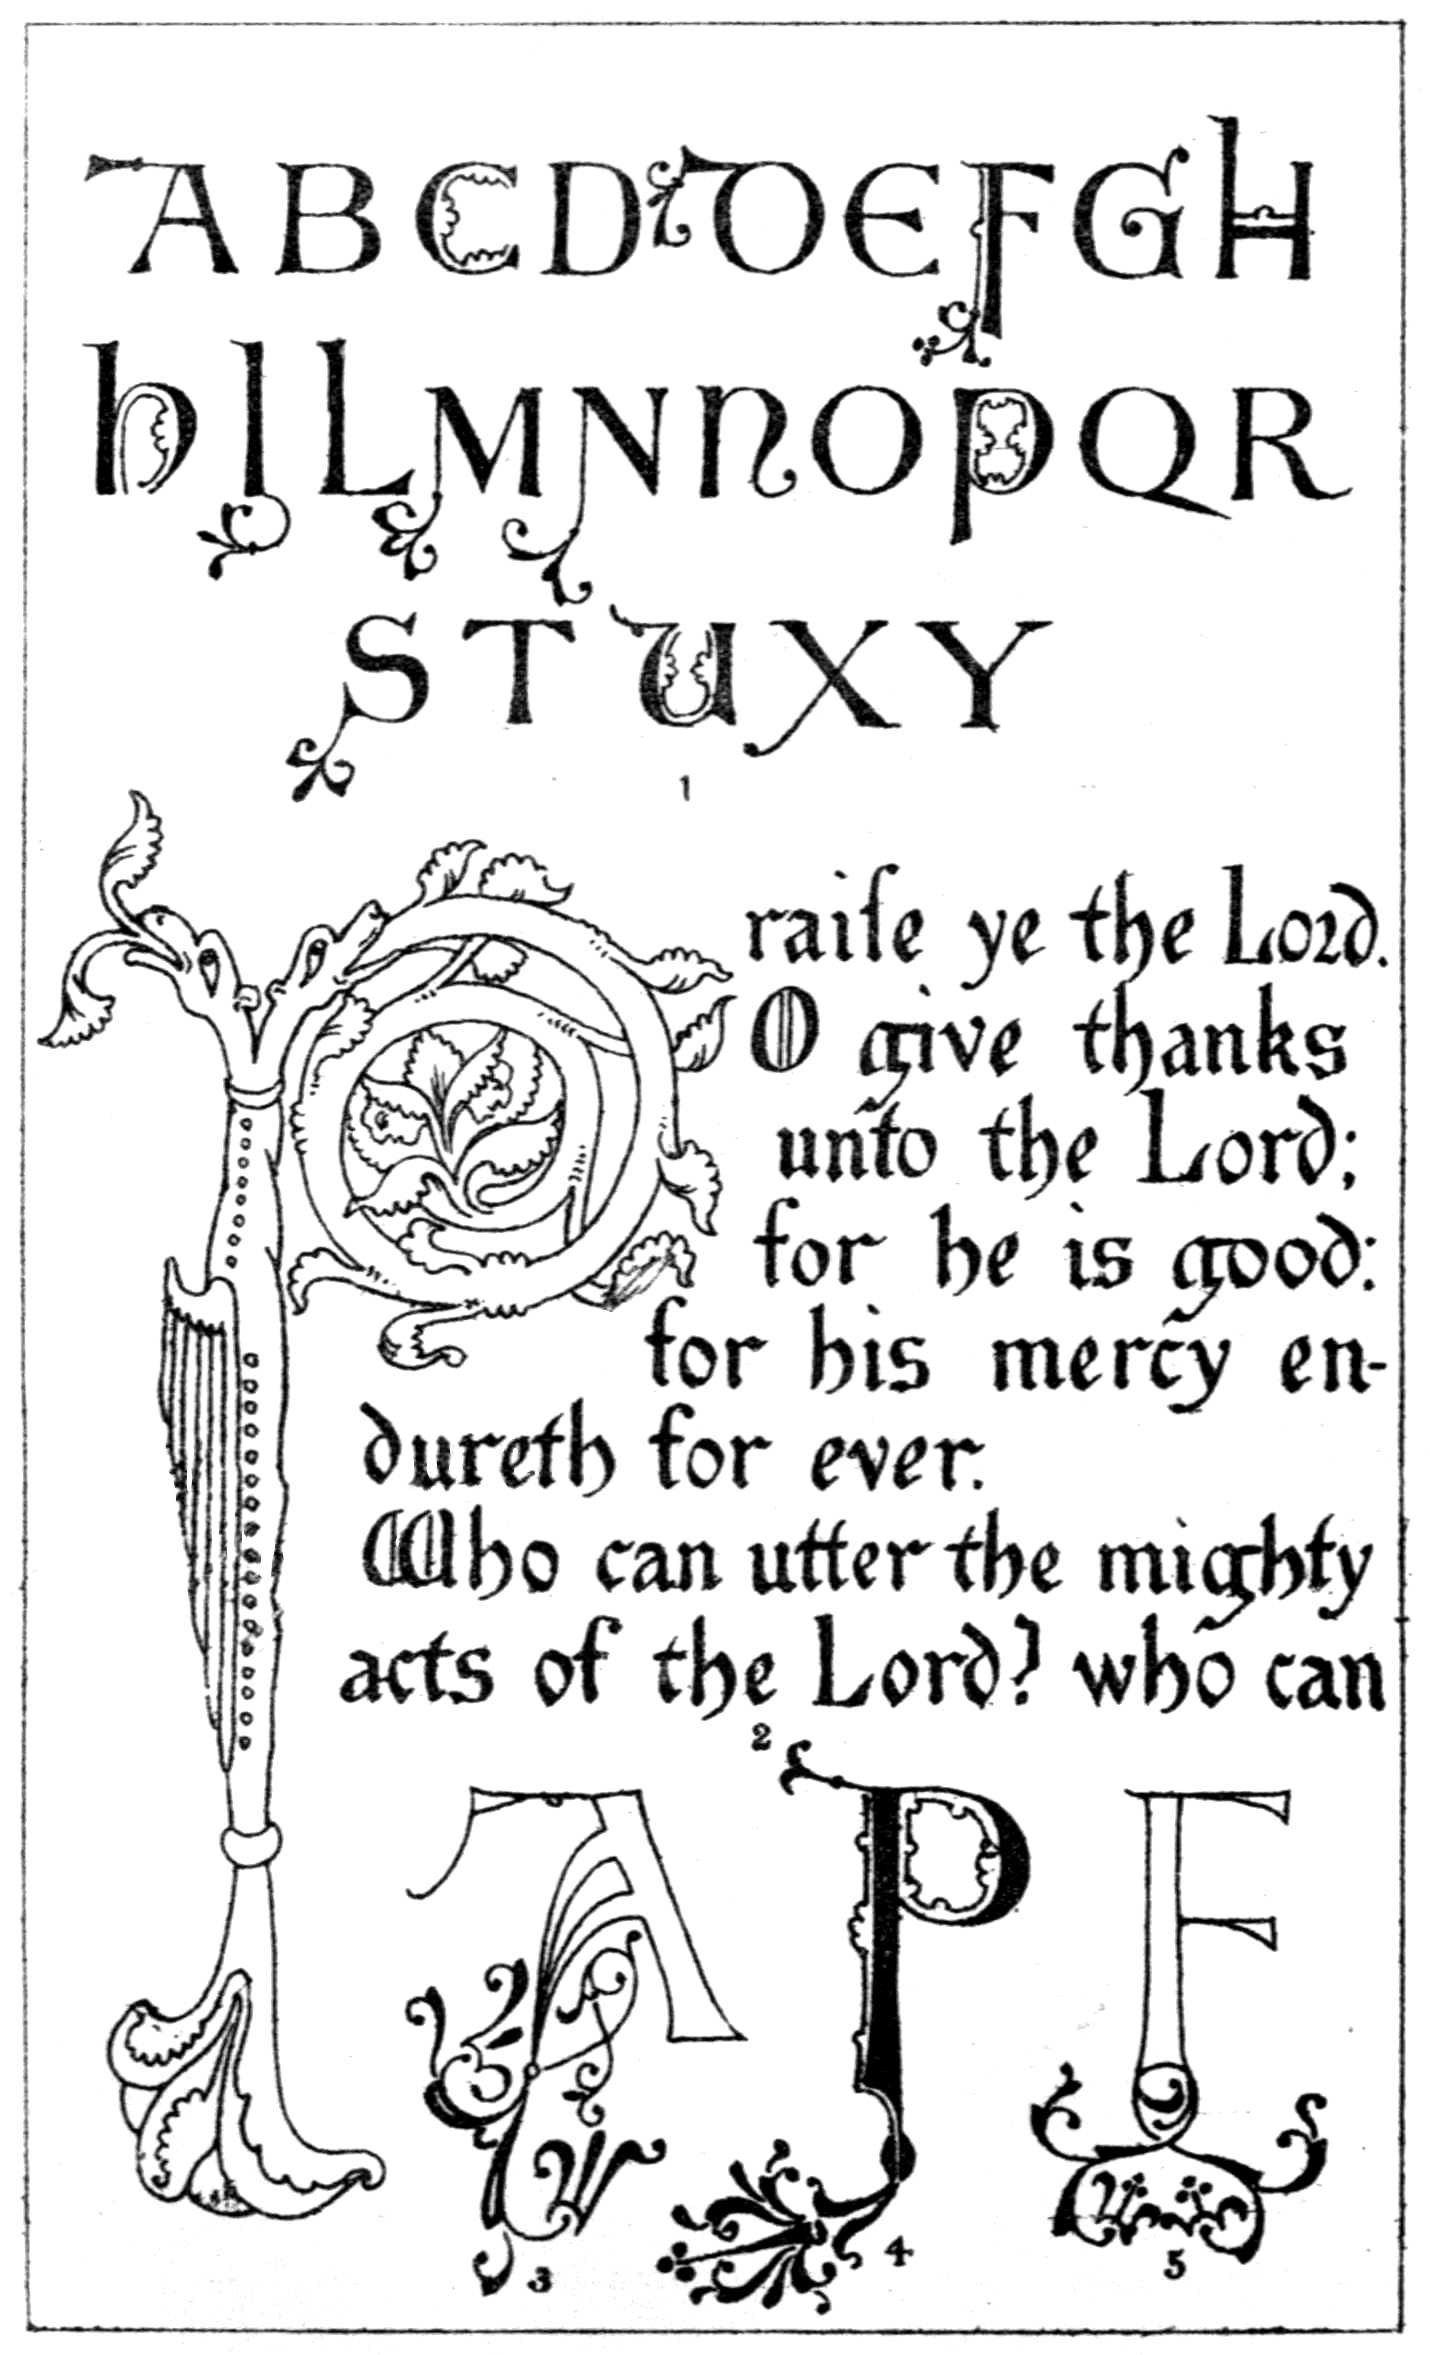 ABCDDEFGH
hILMNNOPQR
STUXY
1
Praiſe ye the Lord.
O give thanks
unto the Lord;
for he is good:
for his mercy en-
dureth for ever.
Who can utter the mighty
acts of the Lord? who can
2
A P F
3 4 5